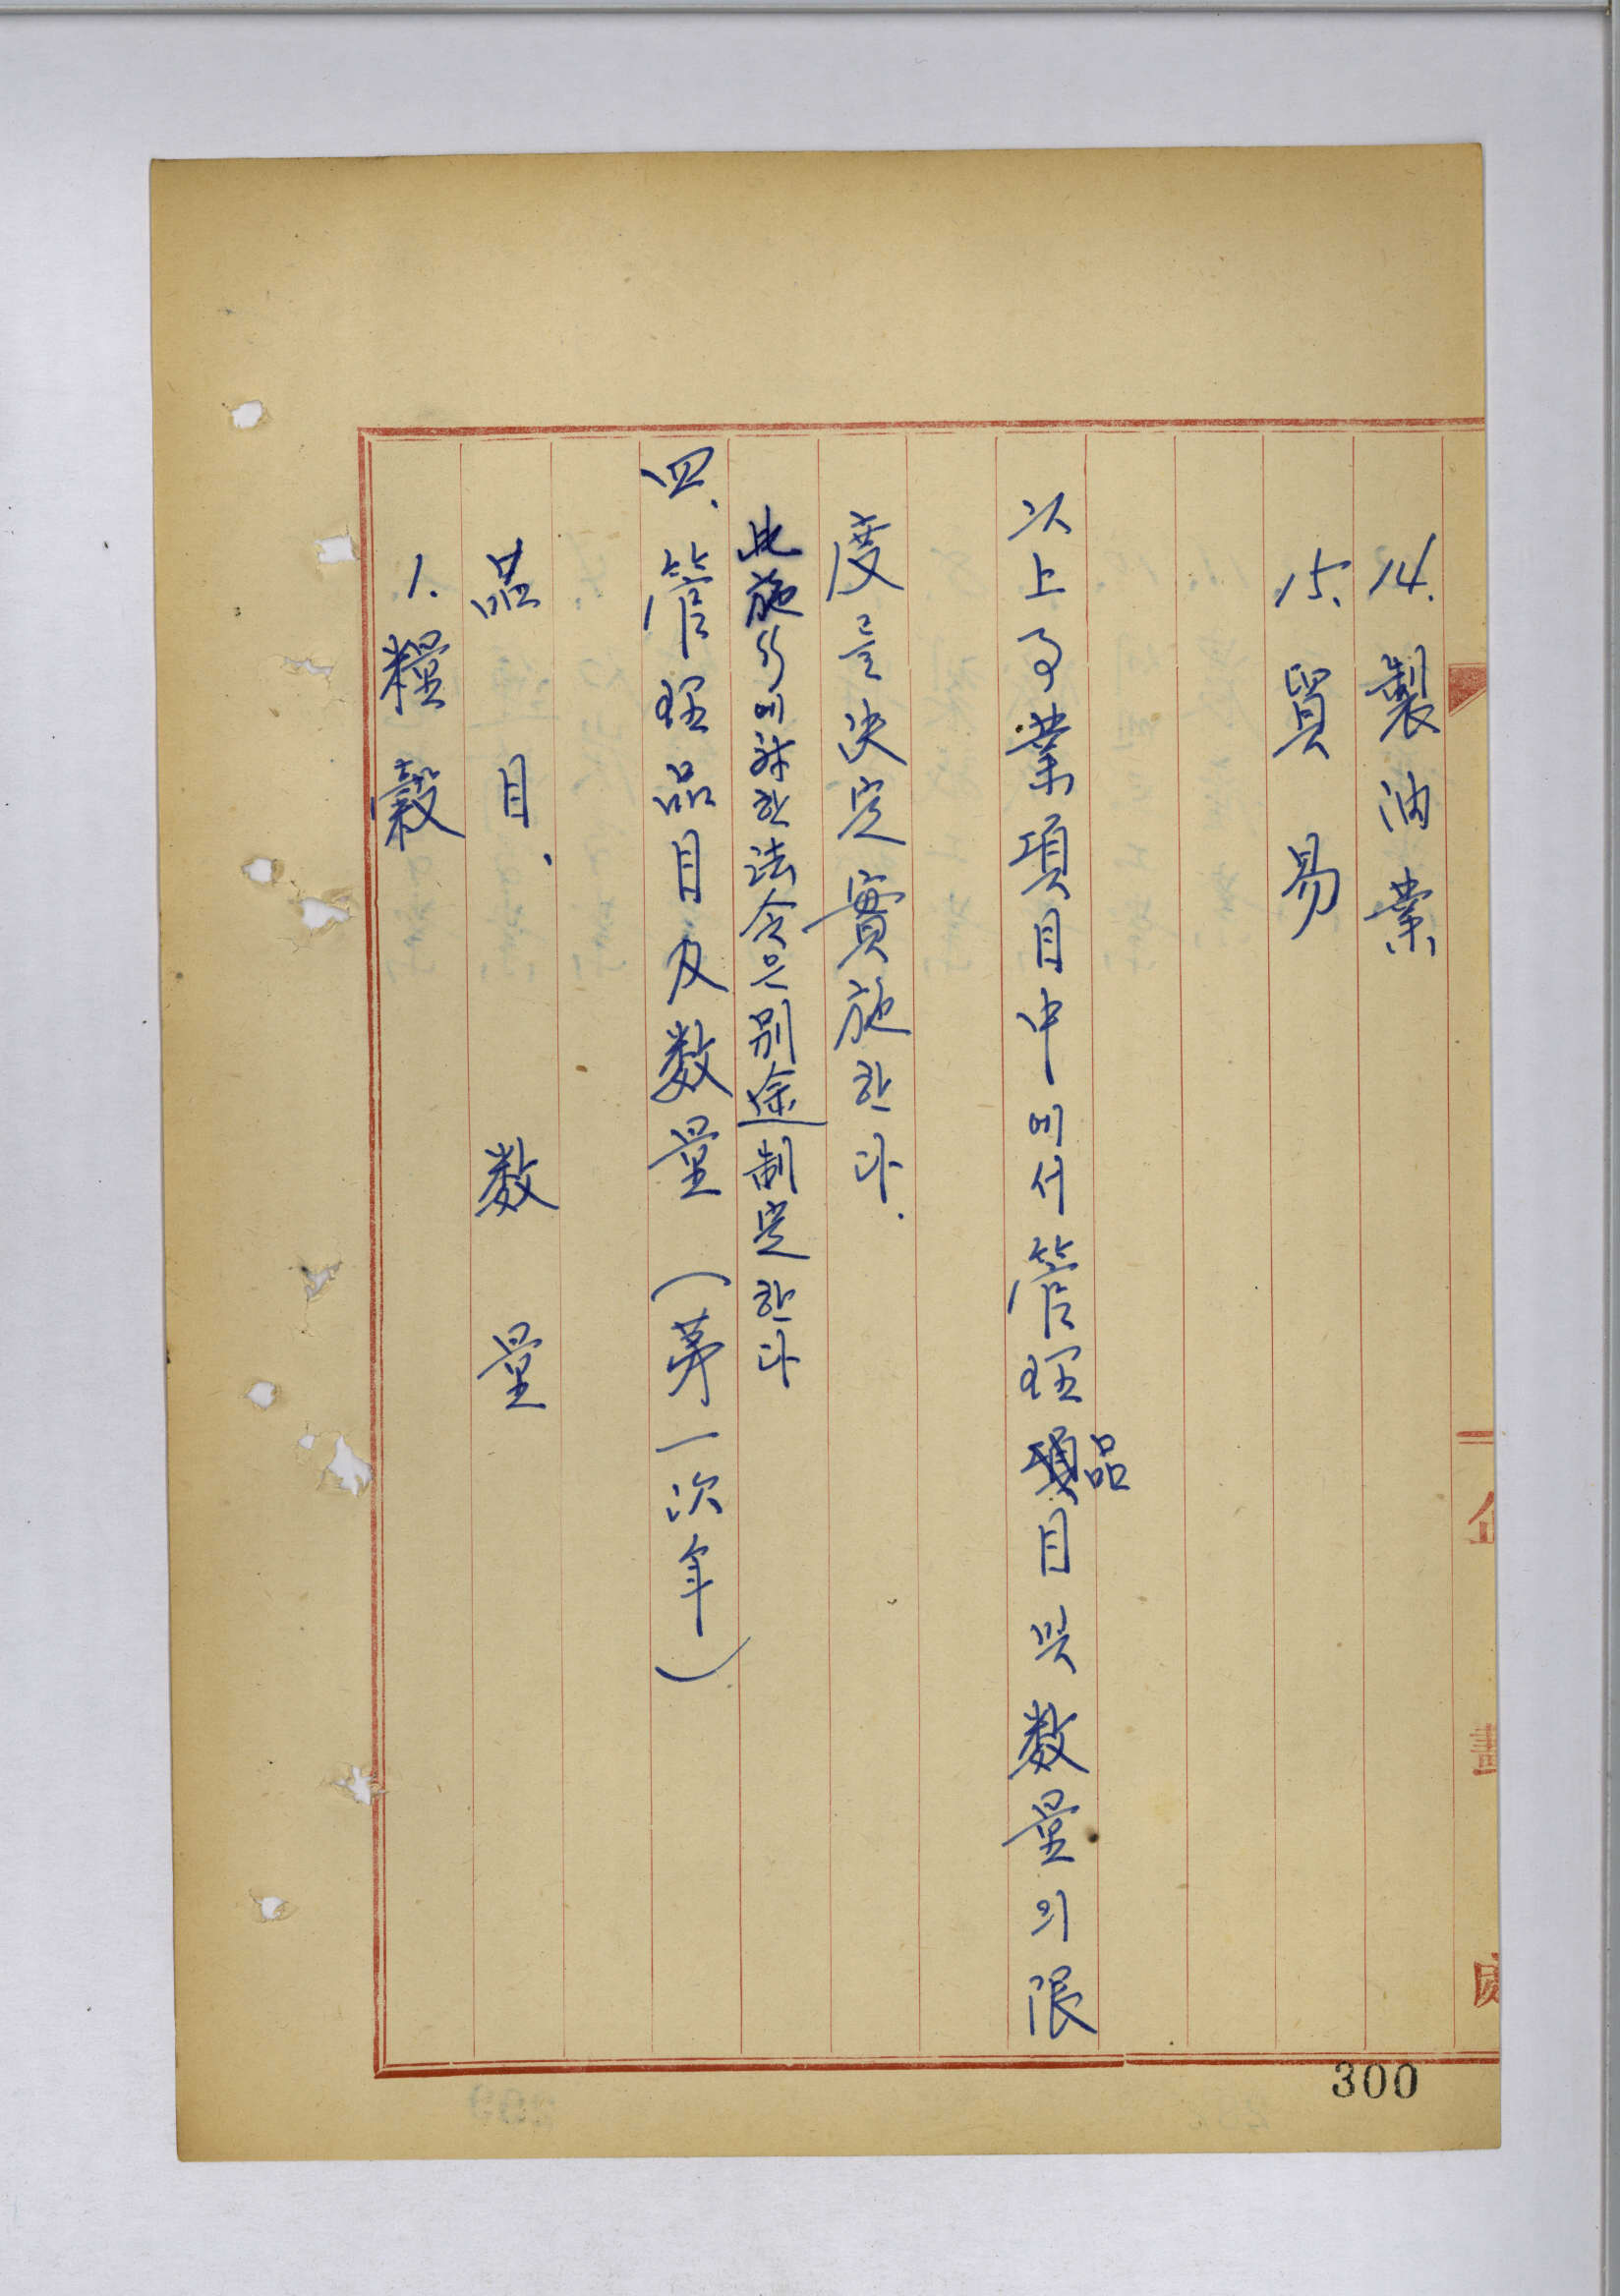 14. 製油業
15. 貿易
以上事業項目中에서管理品目또数量의限
度를決定實施한다.
此施行에対한法令은別途制定한다
四、管理品目及数量 (第一次年)
品目、 数量
1. 糧穀
300